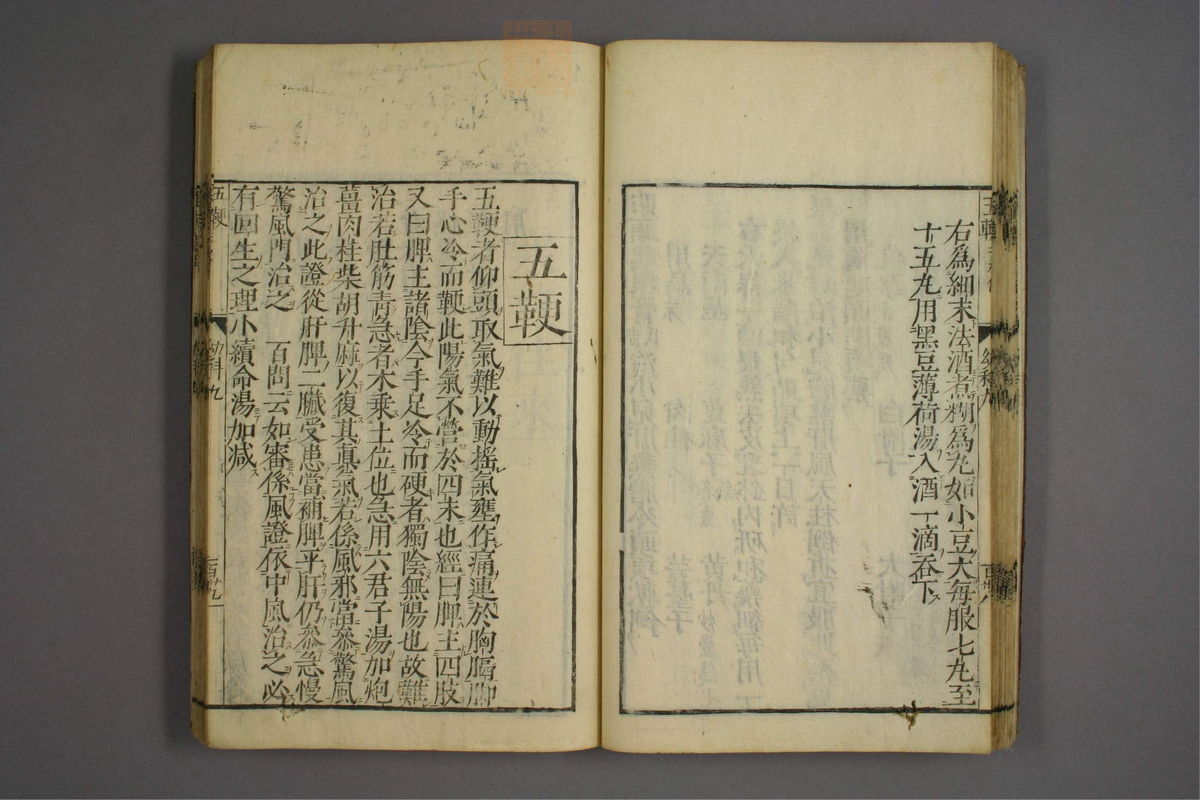 右爲細末法酒煮糊爲丸如小豆大每服七丸至
十五丸用黑豆薄荷湯入酒一滴吞下
五鞕
五鞕者仰頭取氣難以動搖氣壅作痛連於胸膈脚
手心冷而鞕此陽氣不營於四末也經曰脾主四肢
又曰脾主諸陰今手足冷而硬者獨陰無陽也故難
治若肚筋青急者木乘土位也急用六君子湯加炮
薑肉桂柴胡升麻以復其眞氣若係風邪當參驚風
治之此證從肝脾二臟受患當補脾平肝仍參急慢
驚風門治之　百問云如審係風證依中風治之必
有回生之理小續命湯加減
五鞕
幼科九
百廿九